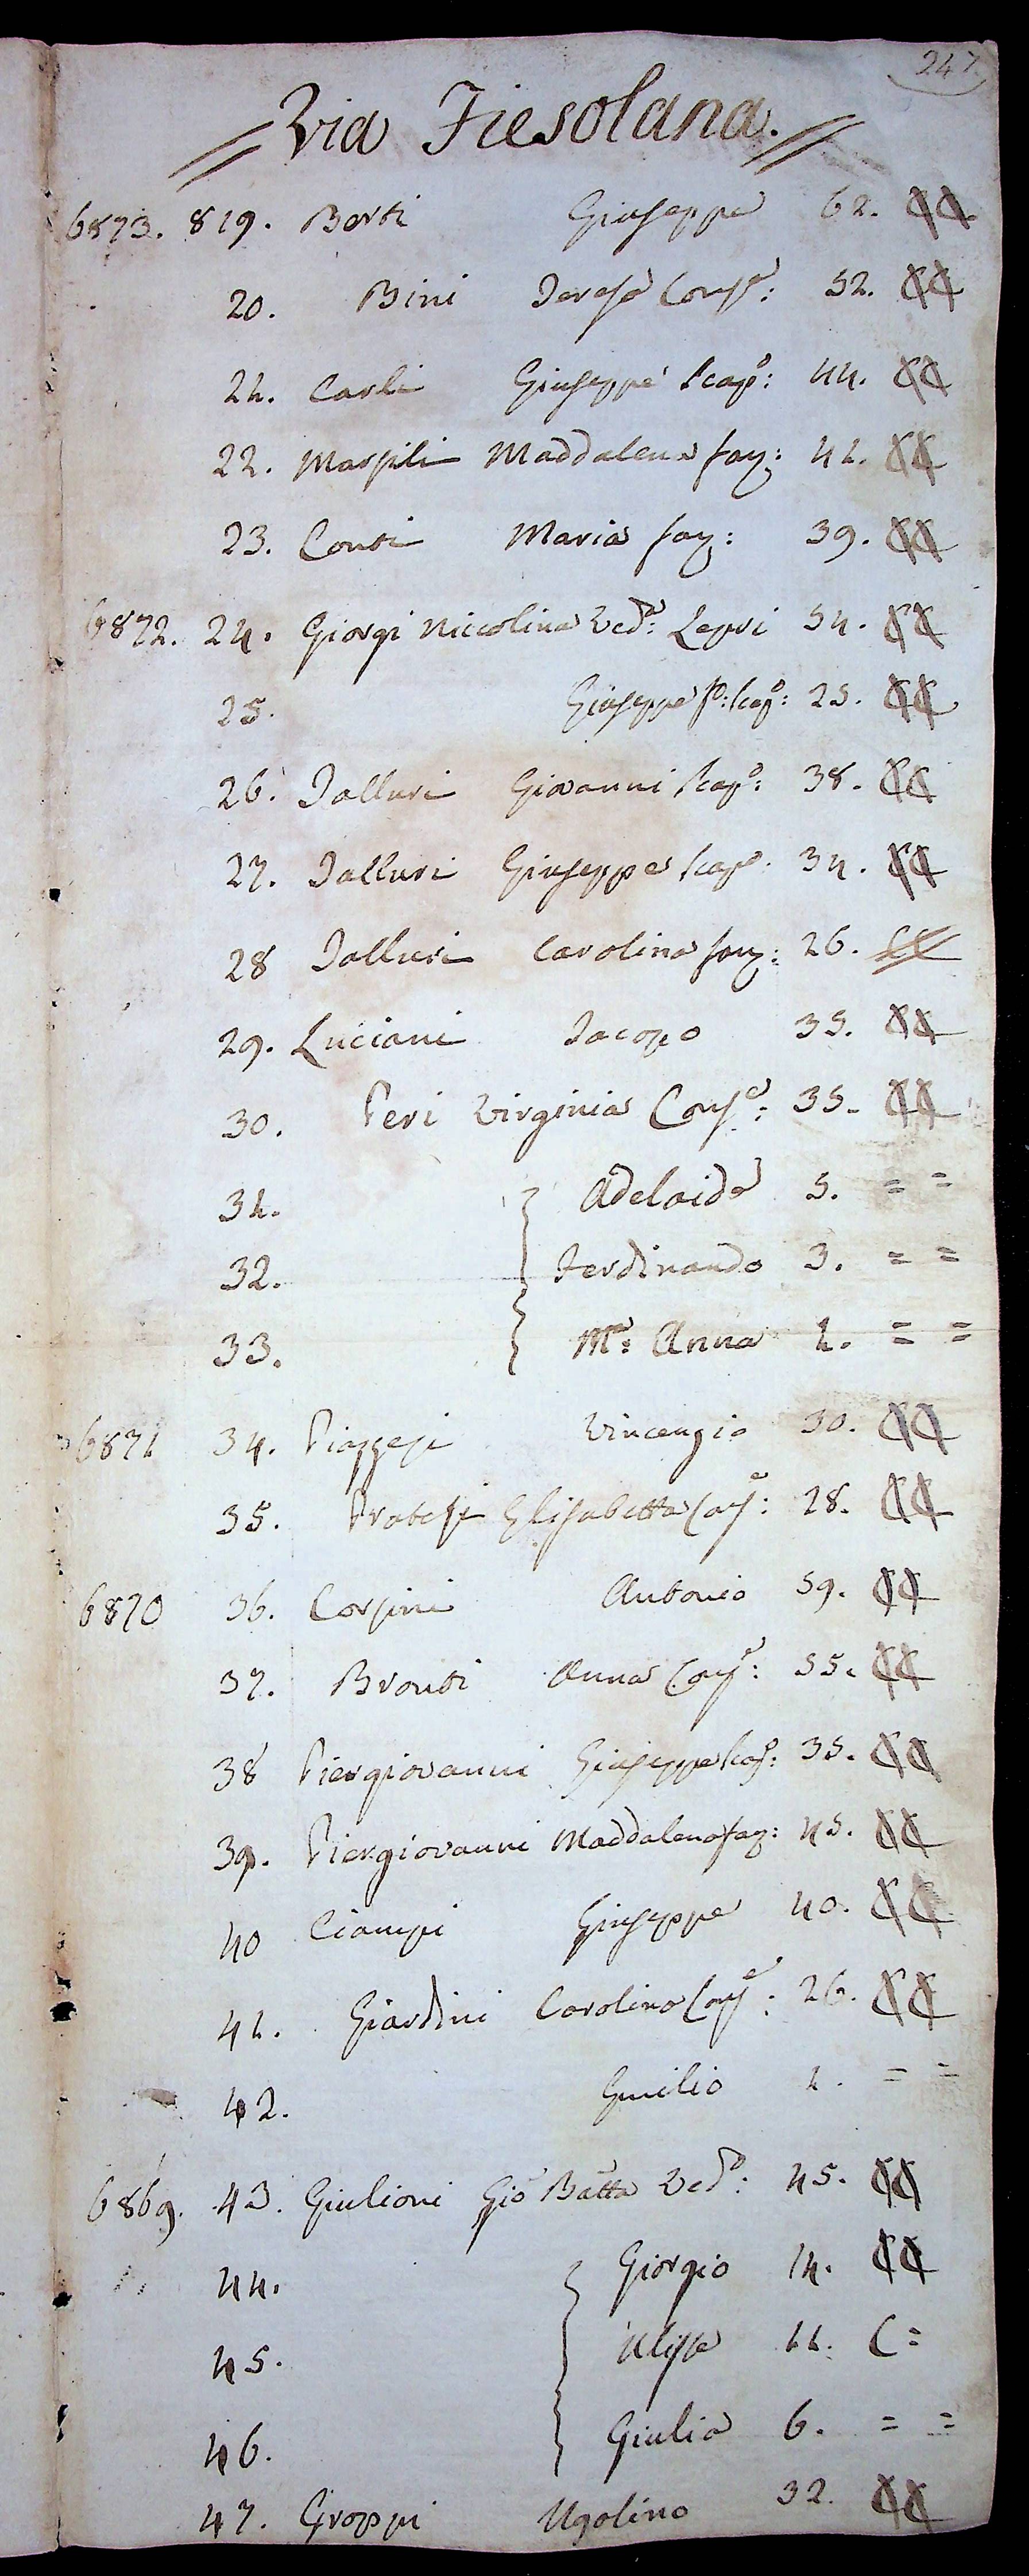 247
Via Fiesolana.
6873. 819. Berti Giuseppe 62. CC
20. Bini Teresa Cons.e: 52. CC
21. Carli Giuseppe scap.o: 44. CC
22. Marsili Maddalena fan: 41. CC
23. Conti Maria fan: 39. CC
6872. 24. Giorgi Niccolina Ved.a: Lepri 54. CC
25. Giuseppe f.o: scap.o: 25. CC
26. Talluri Giovanni scap.o: 38. CC
27. Talluri Giuseppe scap.o 34. CC
28 Talluri Carolina fan: 26. CC
29. Luciani Jacopo 35. CC
30. Peri Virginia Cons.e: 35. CC
31. Adelaide 5. = =
32. Ferdinando 3. = =
33. M.a: Anna 1. = =
6871 34. Piazzesi Vincenzio 30. CC
35. Pratesi Elisabetta Cons.e: 28. CC
6870 36. Corsini Antonio 59. CC
37. Bronti Anna Cons.e: 55. CC
38 Piergiovanni Giuseppe scap.o: 35. CC
39. Piergiovanni Maddalena fan: 45. CC
40 Ciampi Giuseppe 40. CC
41. Giardini Carolina Cons.e: 26. CC
42. Emilio 1. = =
6869. 43. Giulioni Gio Batta Ved.o: 45. CC
44. Giorgio 14. CC
45. Ulisse 11. C =
46. Giulia 6. = =
47. Groppi Ugolino 32. CC